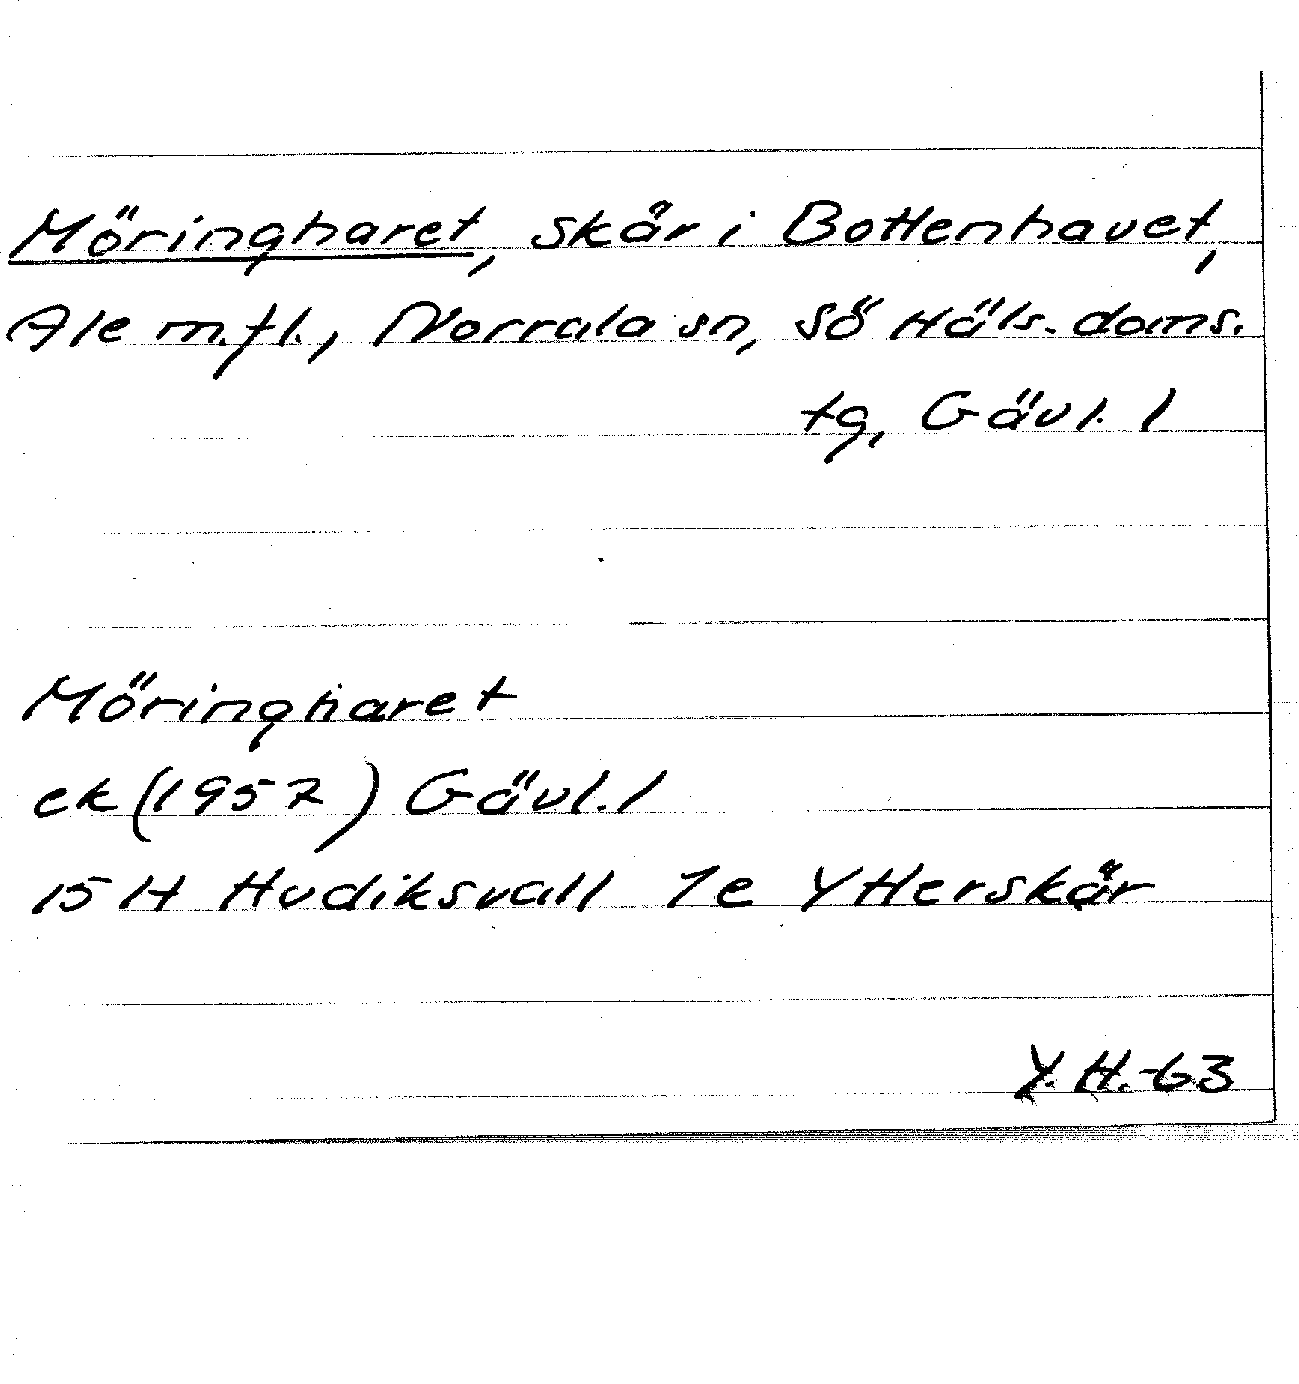 Möringharet, skär i Bottenhavet,
Ale m.fl., Norrala sn, Sö Häls. doms.
tg, Gävl. l
Möringharet
ek (1957) Gävl. l
15 H Hudiksvall 7e Ytterskär
Y.H.-63